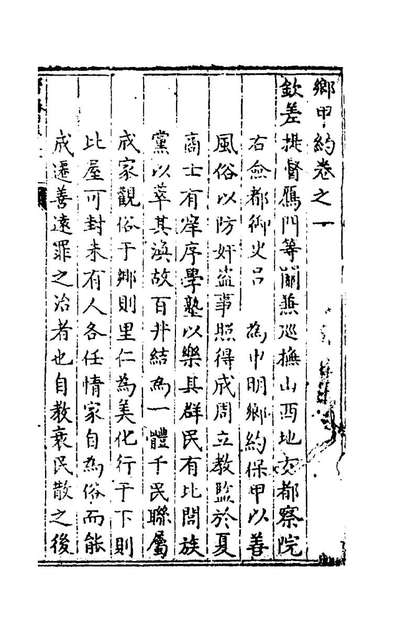 鄉甲約卷之一
欽差提督鴈門等關兼巡撫山西地方都察院
右僉都御史呂　為申明鄉約保甲以善
風俗以防奸盜事照得成周立教監於夏
商士有庠序學塾以樂其群民有比閭族
黨以萃其渙故百井結為一體千民聯屬
成家觀俗于鄉則里仁為美化行于下則
比屋可封未有人各任情家自為俗而能
成遷善遠罪之治者也自教衰民散之後